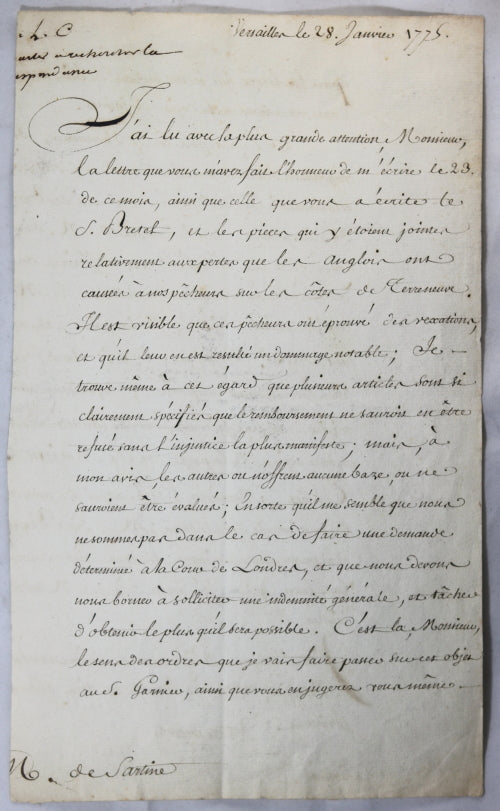 Versailles le 28. Janvier 1775.
J'ai lu avec la plus grande attention, Monsieur,
la lettre que vous m'avez fait l'honneur de m'écrire le 23.
de ce mois, ainsi que celle que vous a écrite le
S. Breset, et les pieces qui y étoient jointes
relativement aux pertes que les Anglois ont
causées à nos pêcheurs sur les côtes de Terreneuve.
Il est visible que ces pêcheurs ont éprouvé des vexations,
et qu'il leur en est resulté un dommage notable; Je
trouve même à cet égard que plusieurs articles sont si
clairement spécifiés que le remboursement ne sauroit en être
refusé sans l'injustice la plus manifeste; mais, à
mon avis les autres ou n'offrent aucune baze, ou ne
sauroient être évalués; Ensorte qu'il me semble que nous
ne sommes pas dans le cas de faire une demande
déterminé à la Cour de Londres, et que nous devons
nous borner à solliciter une indemnité générale, et tâcher
d'obtenir le plus qu'il sera possible. C'est là, Monsieur,
le sens des ordres que je vais faire passer sur cet objet
au S. Garnier, ainsi que vous en jugerez vous même
de Sartine